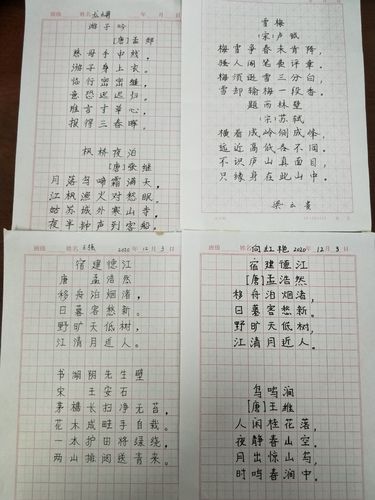 班级 姓名 年 月 日
游子吟
[唐]孟郊
慈母手中线,
游子身上衣。
临行密密缝,
意恐迟迟归。
谁言寸草心,
报得三春晖。
枫桥夜泊
[唐]张继
月落乌啼霜满天,
江枫渔火对愁眠。
姑苏城外寒山寺,
夜半钟声到客船
雪梅
[宋]卢钺
梅雪争春未肯降,
骚人阁笔费评章。
梅须逊雪三分白,
雪却输梅一段香。
题西林壁
[宋]苏轼
横看成岭侧成峰,
远近高低各不同。
不识庐山真面目,
只缘身在此山中。
班级 姓名 2020年12月3日
宿建德江
唐 孟浩然
移舟泊烟渚,
日暮客愁新。
野旷天低树,
江清月近人。
书湖阴先生壁
宋 王安石
茅檐长扫净无苔,
花木成畦手自栽。
一水护田将绿绕,
两山排闼送青来。
班级 姓名 向红艳 2020年12月3日
宿建德江
[唐]孟浩然
移舟泊烟渚,
日暮客愁新。
野旷天低树,
江清月近人。
鸟鸣涧
[唐]王维
人闲桂花落,
夜静春山空。
月出惊山鸟,
时鸣春涧中。